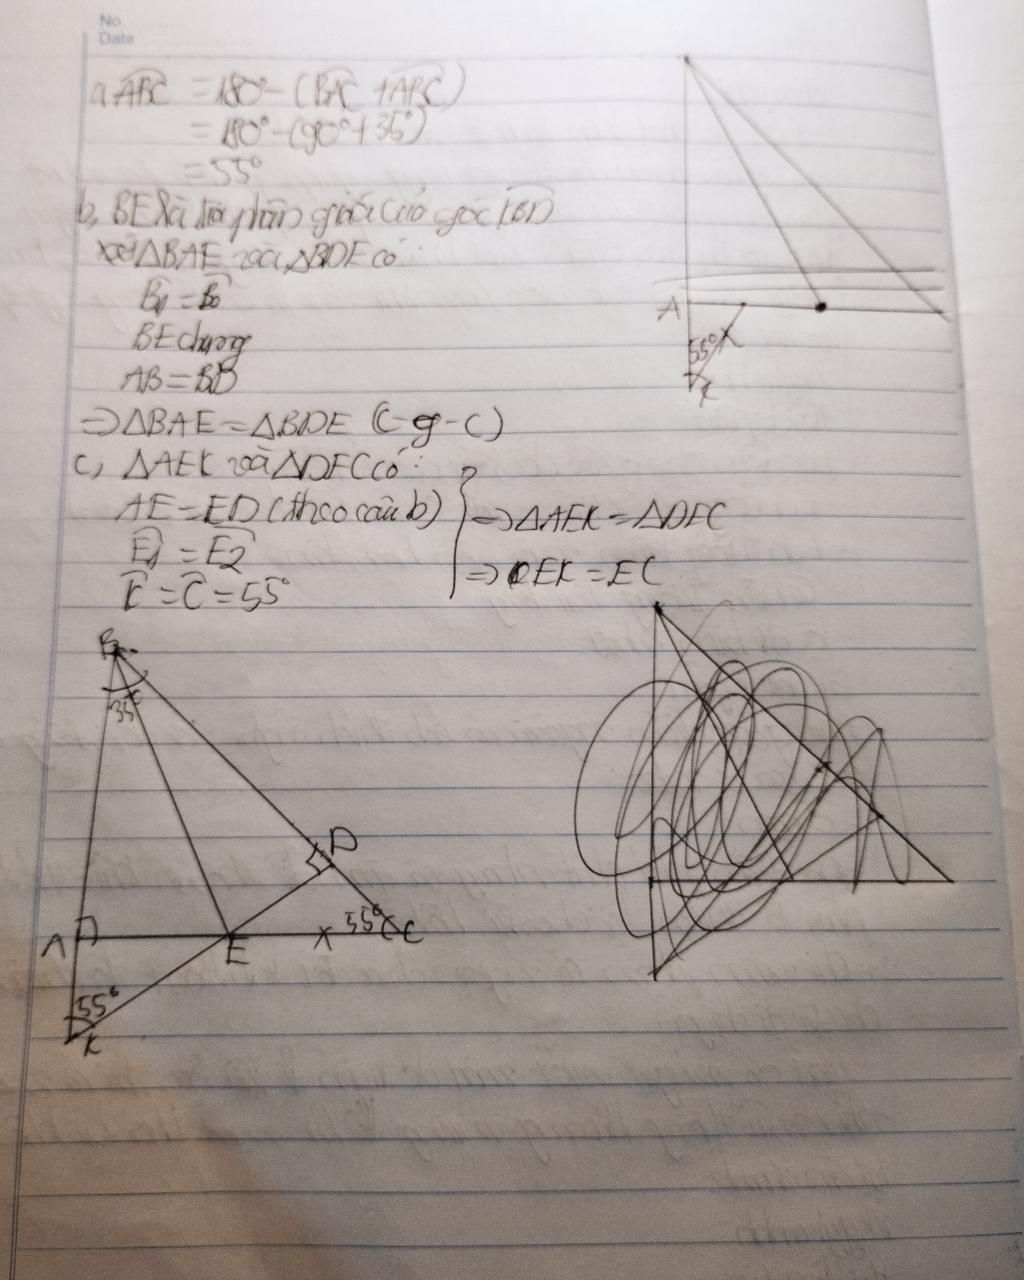 No.
Date
a ABC = 180° - (BAC + ABC)
= 180° - (90° + 35°)
= 55°
b, BE là tia phân giác của góc
xét ΔBAE và ΔBDE có:
B1 =
BE chung
AB = BD
=> ΔBAE = ΔBDE (c-g-c)
c, ΔAEK và ΔDEC có:
AE = ED (theo câu b)
E1 = E2
K = C = 55°
=> ΔAEK = ΔDEC
=> EK = EC
A
55°
K
B
35°
D
A
E
55°
C
55°
K